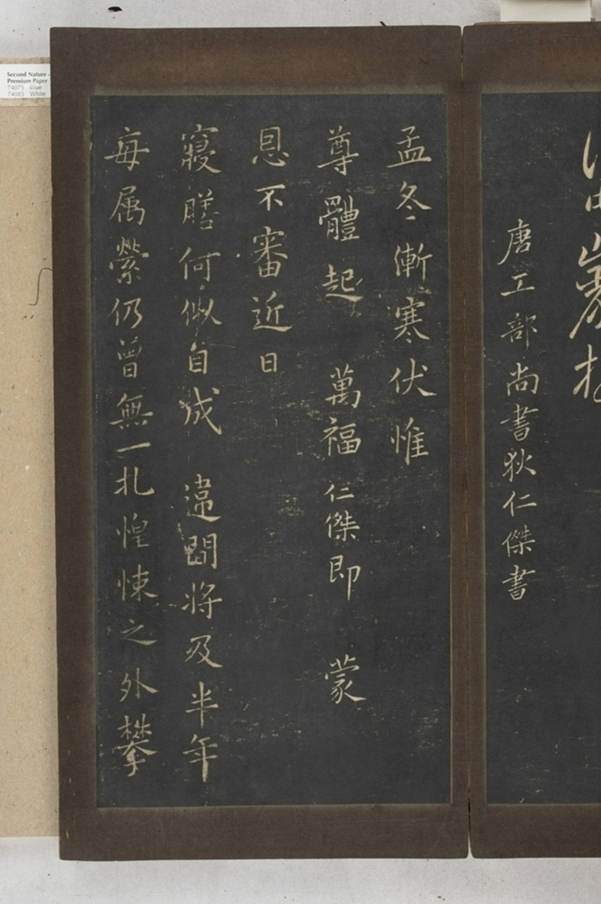 唐工部尚書狄仁傑書
孟冬漸寒伏惟
尊體起 萬福仁傑即 蒙
恩不審近日
寢膳何似自成 違間將及半年
每属縈仍曾無一扎惶悚之外攀
Second Nature
Premium Paper
74075 Blue
74085 White